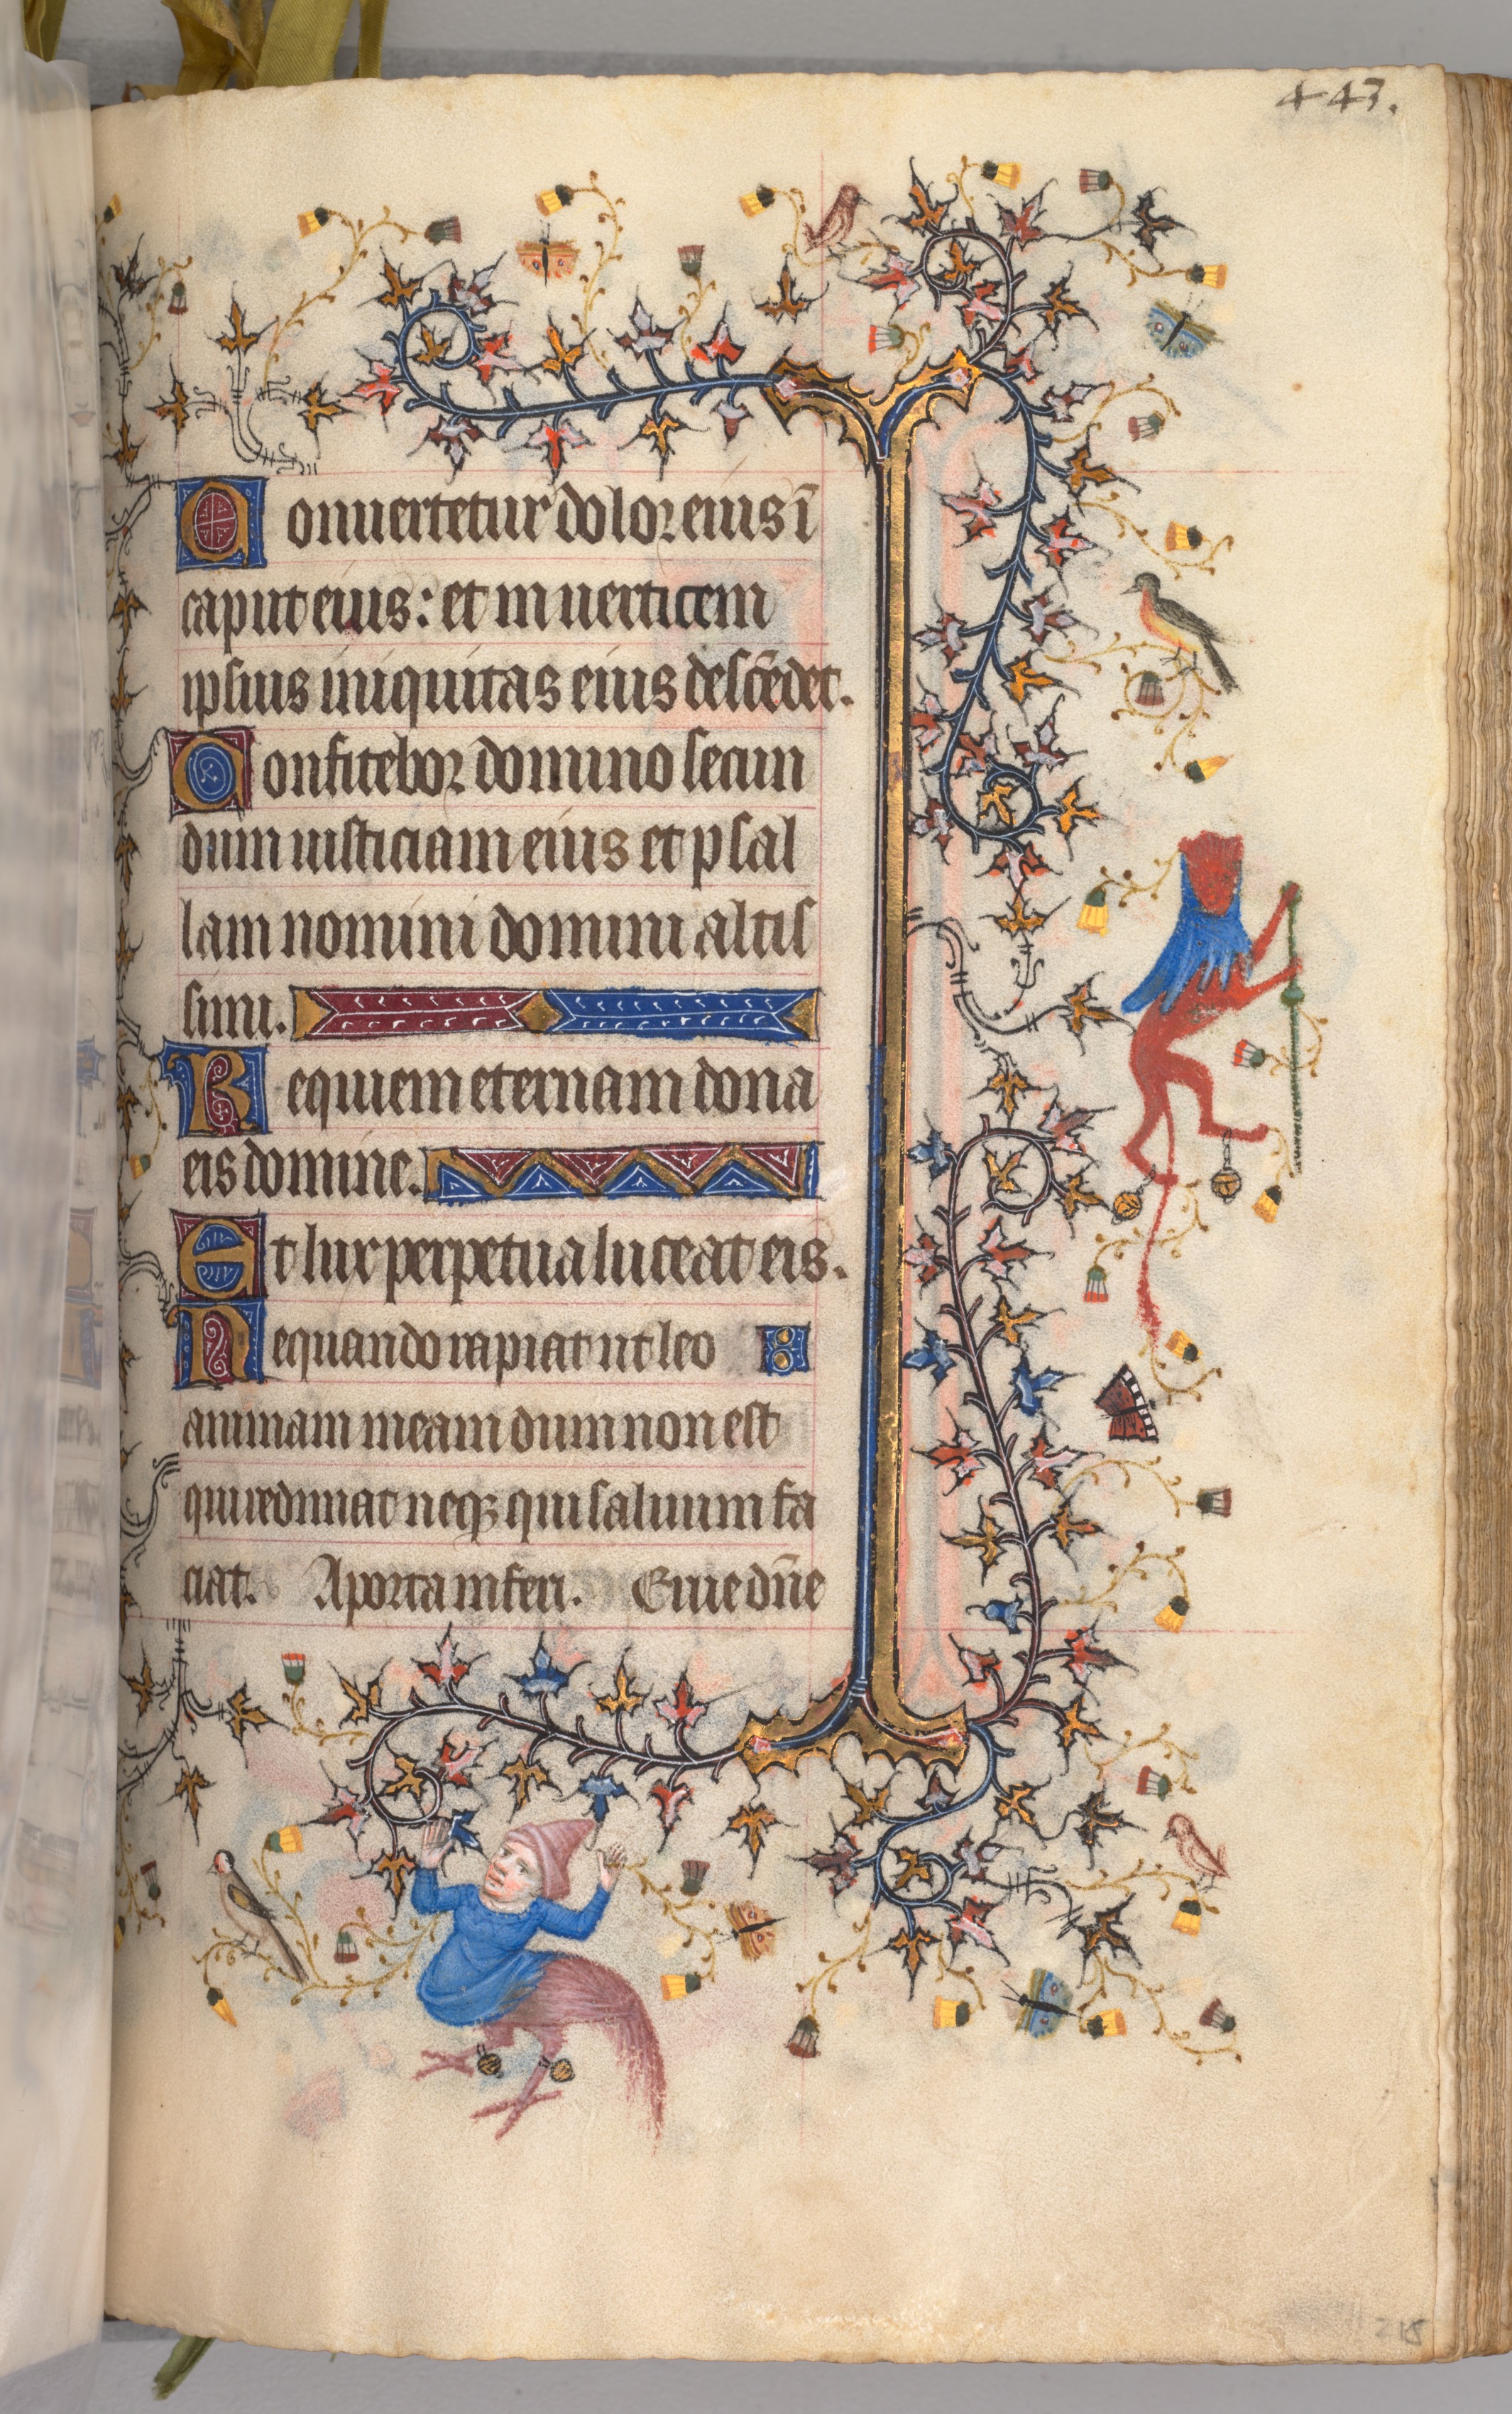 443.
Conuertetur dolor eius ī
caput eius: et in uerticem
ipsius iniquitas eius descēdet.
Confitebor domino secun
dum iusticiam eius et psal
lam nomini domini altis
simi.
Requiem eternam dona
eis domine.
Et lux perpetua luceat eis.
Nequando rapiat ut leo
animam meam dum non est
qui redimat neqꝫ qui saluum fa
ciat. A porta inferi. Erue dñe
218